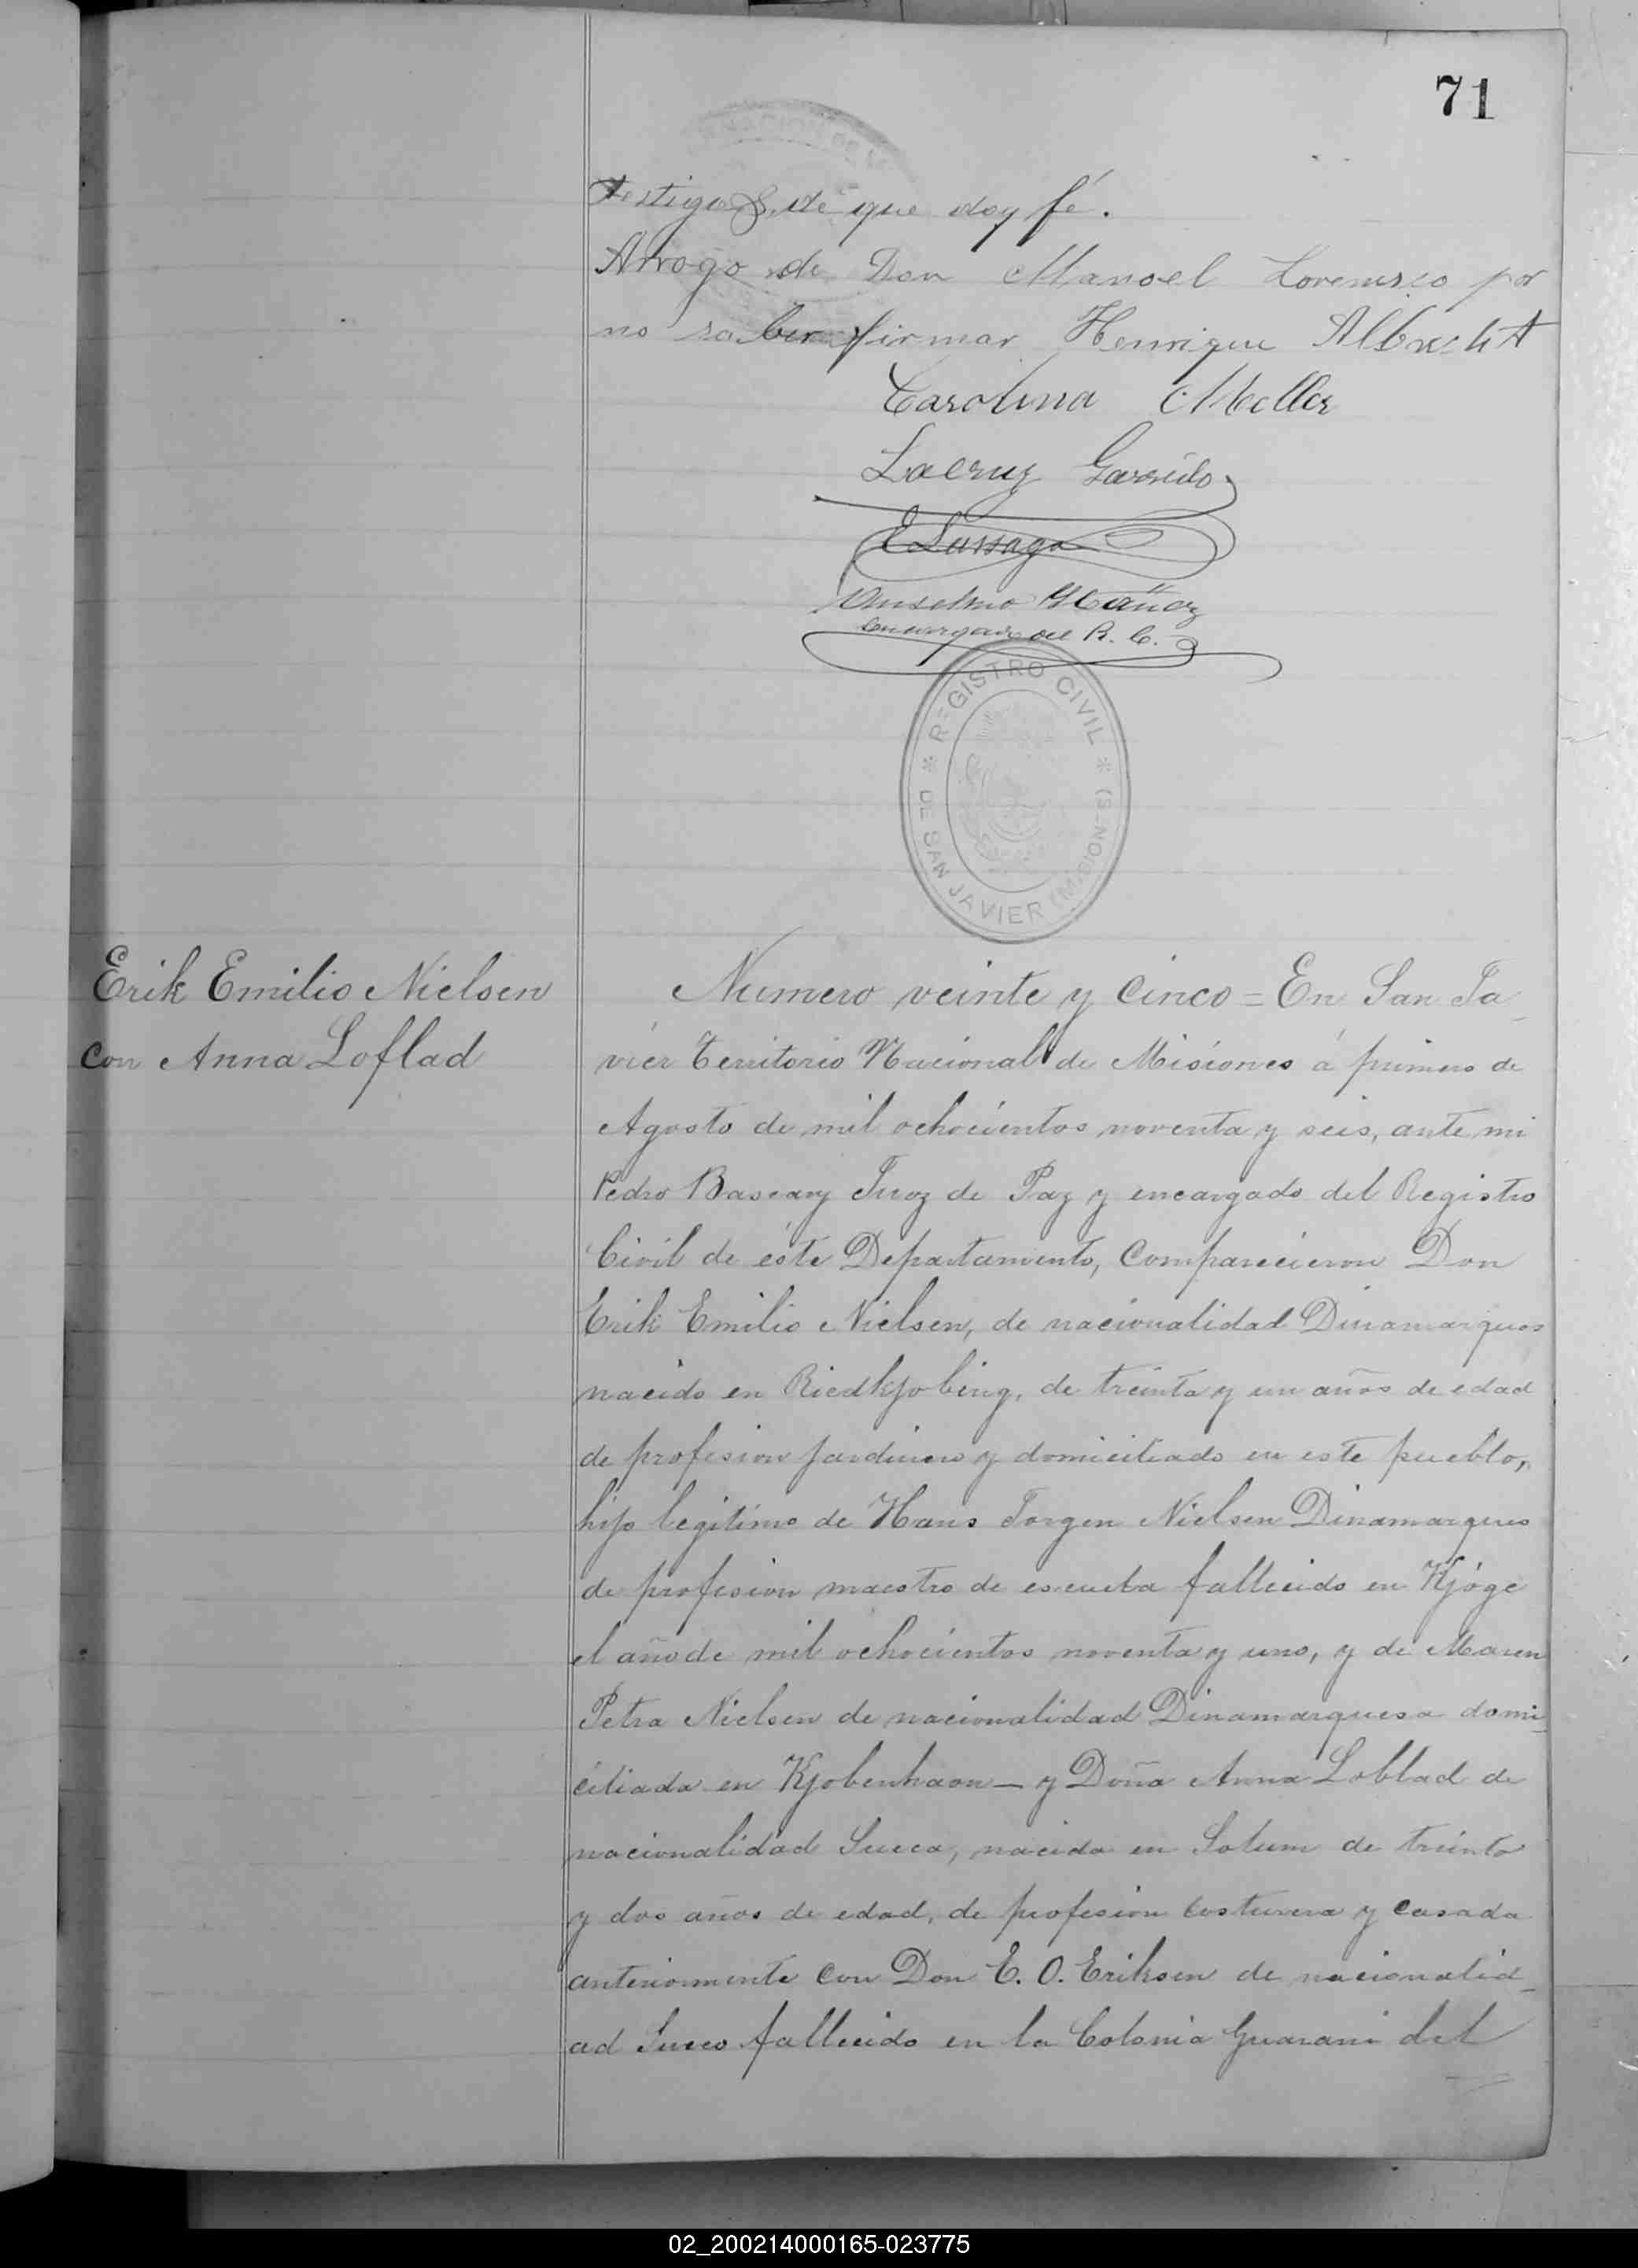 71
testigos, de que doy fé.
Arrogo de Don Manoel Lorenszo por
no saber firmar Henrique Albrecht
Carolina Meller
Lacruz Garrido
E Lussaga
Anselmo
Encargado del R. C.
REGISTRO CIVIL * DE SAN JAVIER (MISIONES) *
Erik Emilio Nielsen
con Anna Loflad
Numero veinte y cinco = En San Ja_
vier Territorio Nacional de Misiones á primero de
Agosto de mil ochocientos noventa y seis, ante mi
Pedro Bascary Juez de Paz y encargado del Registro
Civil de éste Departamento, Comparecieron Don
Erik Emilio Nielsen, de nacionalidad Dinamarques
nacido en Riedkjobing, de treinta y un años de edad
de profesion jardinero y domiciliado en este pueblo,
hijo legitimo de Hans Jorgen Nielsen Dinamarques
de profesion maestro de escuela fallecido en Kjöge
el año de mil ochocientos noventa y uno, y de Maren
Petra Nielsen de nacionalidad Dinamarquesa domi_
ciliada en Kjobenhaon — y Doña Anna Loblad de
nacionalidad Sueca, nacida en Solum de treinta
y dos años de edad, de profesion costurera y casada
anteriormente con Don E. O. Eriksen de nacionalid_
ad Sueco fallecido en la Colonia Guarani del
02_200214000165-023775